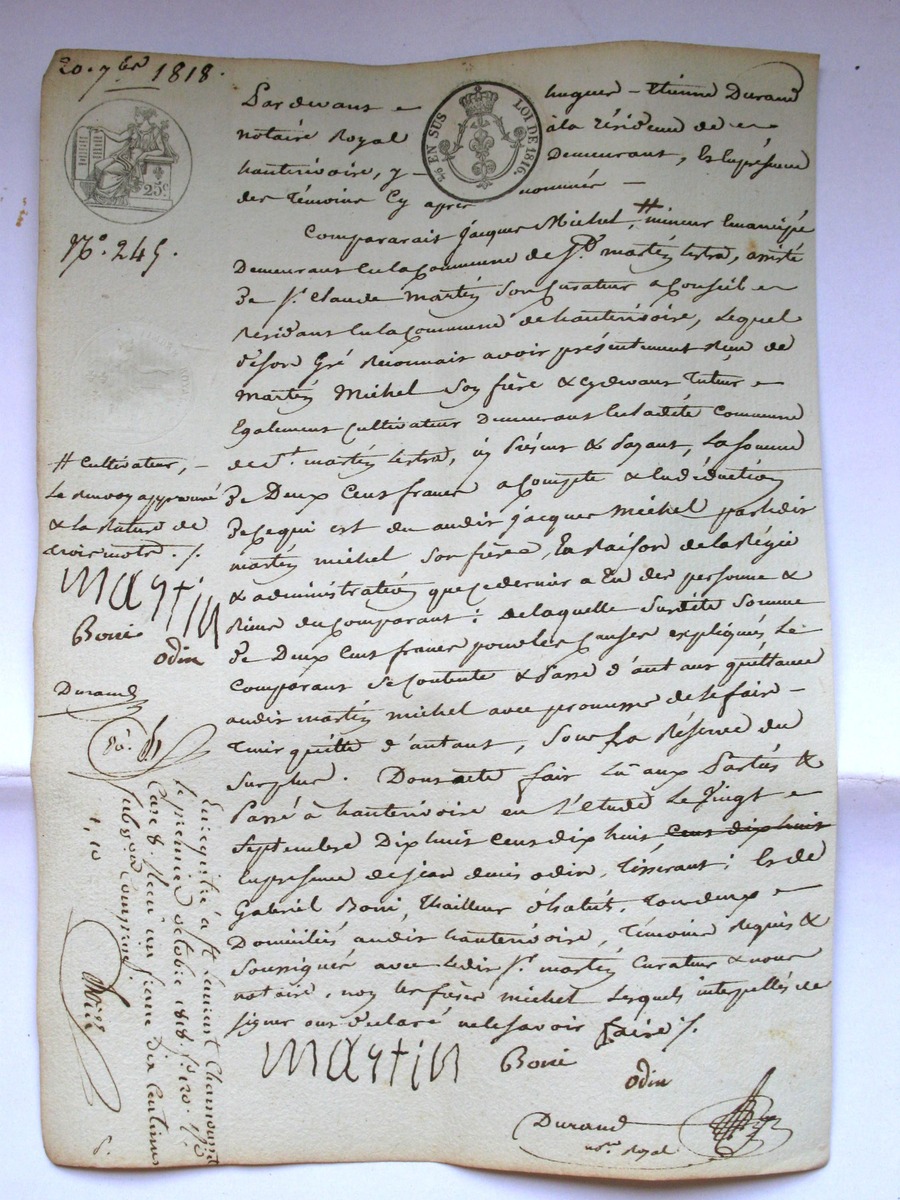 20. 7bre 1818.
25c
EN SUS LOI DE 1816.
Pardevant hugues - Etienne Durand
notaire Royal à la résidence de
hauterivoire, y Demeurant, & En présence
des Témoins Cy apres nommés
N°. 245.
Comparait Jacques Michel, # mineur Emancipé
Demeurant En la Commune de St. martin lestra, assisté
De Sr. Claude Martin Son Curateur a Conseil
Résidant En la Commune de hauterivoire, Lequel
de son Gré Reconnait avoir présentement Reçu de
Martin Michel Son frère & cydevant Tuteur
Egalement Cultivateur Demeurant En la dite Commune
de St. martin lestra, ici Présent & Payant, La Somme
De Deux Cent francs a Compte & En déduction
De Ce qui est du audit Jacques Michel par ledit
martin michel son frère, En Raison de la Régie
& administration que ce dernier a Eu des personne &
Biens du Comparant : de laquelle Susdite Somme
De Deux Cent francs pour les Causes expliqués, Le
Comparant Se Contente & Passe d'autant quittance
audit martin michel avec promesse de le faire
Tenir quitte d'autant, Sous La Réserve du
Surplus. Dont acte fait Lu aux Parties &
Passé à hauterivoire en l'Etude Le Vingt
Septembre Dix huit Cent dix huit Cent dix huit
En présence de Jean denis odin, Tisserant ; & de
Gabriel Boni, Thailleur d'habits, Tous deux
Domiciliés audit hauterivoire, Témoins Requis &
Soussignés avec Ledit Sr. martin Curateur & nous
notaire, non les frères michel Lesquels interpellés de
signer ont déclaré ne le savoir faire ./.
Martin
Boni
odin
Durand
not.re Royal
# Cultivateur,
Le Renvoy approuvé
& la Rature de
trois mots. ./.
Martin
Boni
odin
Durand
Enregistré à St Laurent Chamousset
le premier octobre 1818
Case 8. Reçu un franc dix centimes
subv.on Comprise